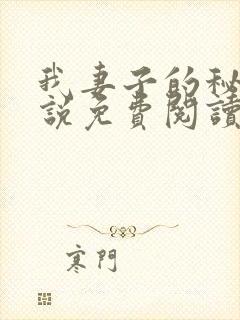 我妻子的秘
說免費閱讀
寒門